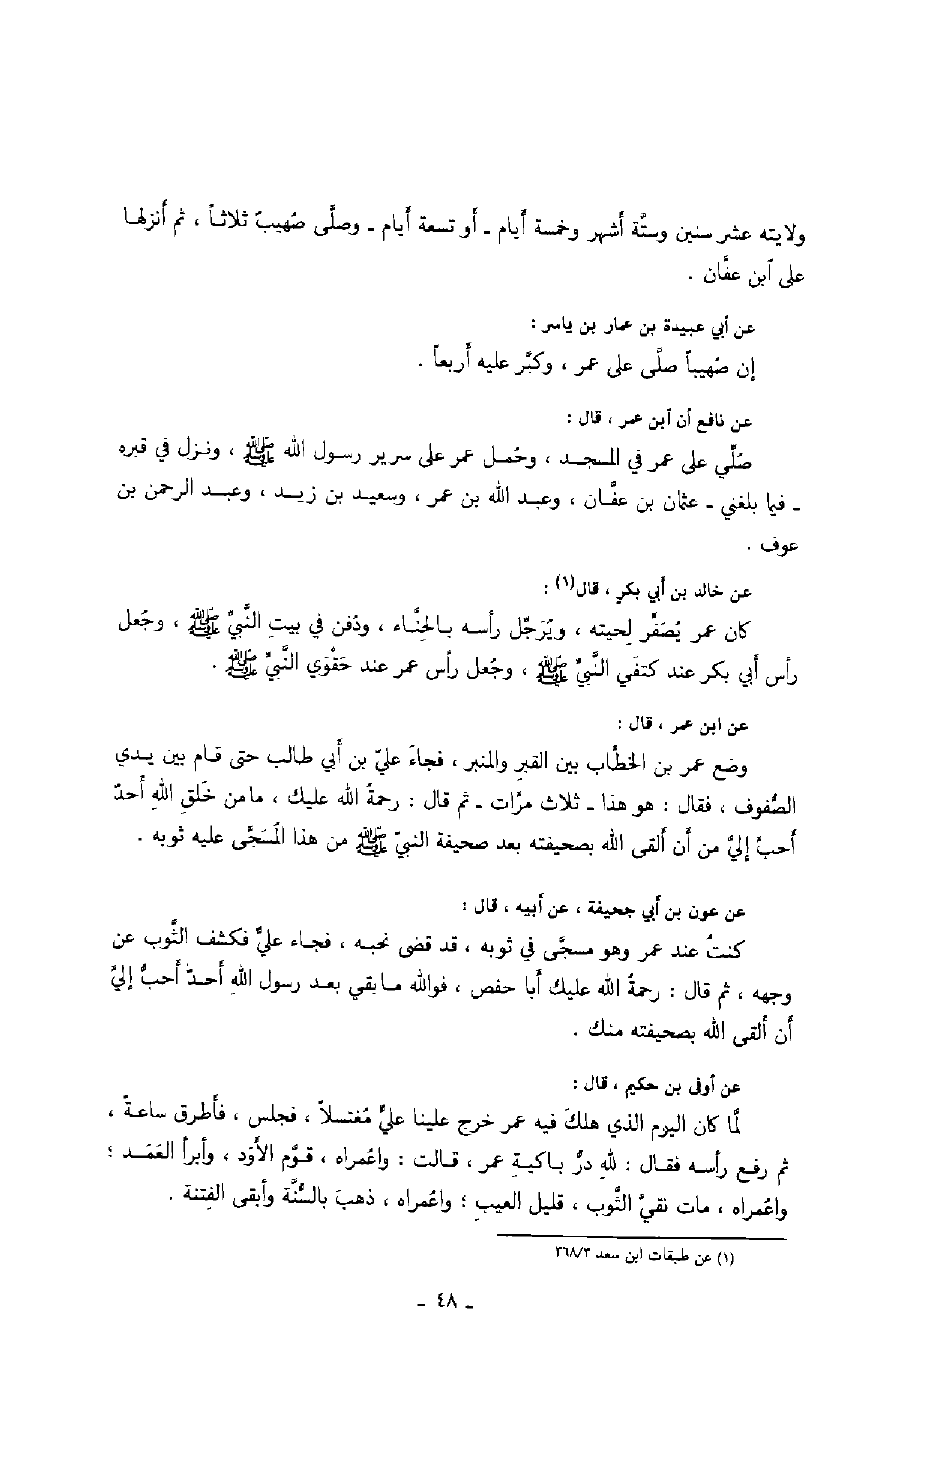 ولايته عشر سنين وستَّة أشهر وخمسة أيام ـ أو تسعة أيام ـ وصلَّى صُهيبٌ ثلاثاً ، ثم أنزلها
على آبن عفَّان .
عن أبي عبيدة بن عمار بن ياسر :
إن صُهيباً صلَّى على عمر ، وكبَّر عليه أربعاً .
عن نافع أن آبن عمر ، قال :
صُلِّي على عمر في المسجد ، وحُمل عمر على سرير رسول الله ﷺ ، ونزل في قبره
ـ فيما بلغني ـ عثمان بن عفَّان ، وعبد الله بن عمر ، وسعيد بن زيد ، وعبد الرحمن بن
عوف .
عن خالد بن أبي بكرٍ ، قال(١) :
كان عمر يُصَفِّر لحيته ، ويُرَجِّل رأسه بالحِنَّاء ، ودُفن في بيتِ النَّبيِّ ﷺ ، وجُعل
رأس أبي بكر عند كتفَي النَّبيِّ ﷺ ، وجُعل رأس عمر عند حَقْوَي النَّبيِّ ﷺ .
عن ابن عمر ، قال :
وضع عمر بن الخطَّاب بين القبرِ والمنبر ، فجاءَ عليّ بن أبي طالب حتى قام بين يدي
الصُّفوف ، فقال : هو هذا ـ ثلاث مرَّات ـ ثم قال : رحمةُ الله عليك ، مامن خَلقِ اللهِ أحدٌ
أحبَّ إليَّ من أن ألقى الله بصحيفته بعد صحيفة النبيّ ﷺ من هذا المُسَجَّى عليه ثوبه .
عن عون بن أبي جحيفة ، عن أبيه ، قال :
كنتُ عند عمر وهو مسجَّى في ثوبه ، قد قضى نحبه ، فجاء عليٌّ فكشف الثَّوب عن
وجهه ، ثم قال : رحمةُ الله عليك أبا حفص ، فوالله مابقي بعد رسول اللهِ أحدٌ أحبُّ إليَّ
أن ألقى الله بصحيفته منك .
عن أوفى بن حكيم ، قال :
لمَّا كان اليوم الذي هلكَ فيه عمر خرج علينا عليٌّ مُغتسلاً ، فجلس ، فأطرق ساعةً ،
ثم رفع رأسه فقال : للهِ درُّ باكيةِ عمر ، قالت : واعُمراه ، قوَّم الأَوَد ، وأبرأ العَمَد ؛
واعُمراه ، مات نقيَّ الثَّوب ، قليل العيبِ ؛ واعُمراه ، ذهبَ بالسُّنَّة وأبقى الفِتنة .
(١) عن طبقات ابن سعد ٣٦٨/٣
ـ ٤٨ ـ